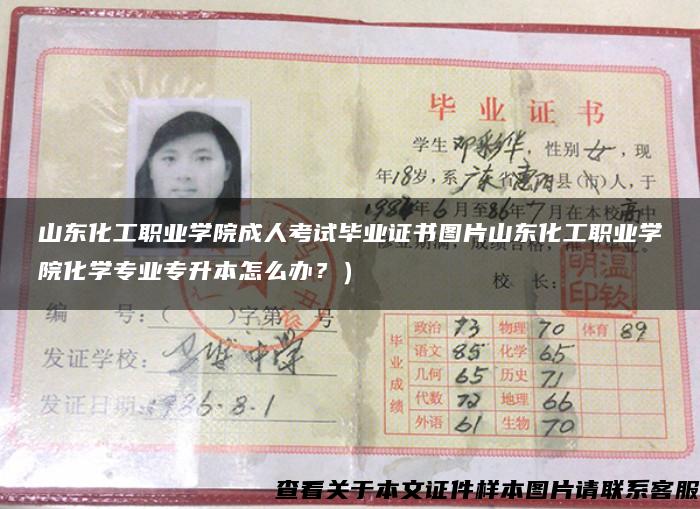 毕业证书
学生邓彩华，性别女，现
年18岁，系广东省惠阳县(市)人，于
6月至86年7月在本校高中
山东化工职业学院成人考试毕业证书图片山东化工职业学
院化学专业专升本怎么办？）
校 长：
编 号：（ ）字第 号
发证学校： 中学
发证日期：1986.8.1
毕业成绩
政治 73 物理 70 体育 89
语文 85 化学 65
几何 65 历史 71
代数 72 地理 66
外语 61 生物 70
查看关于本文证件样本图片请联系客服